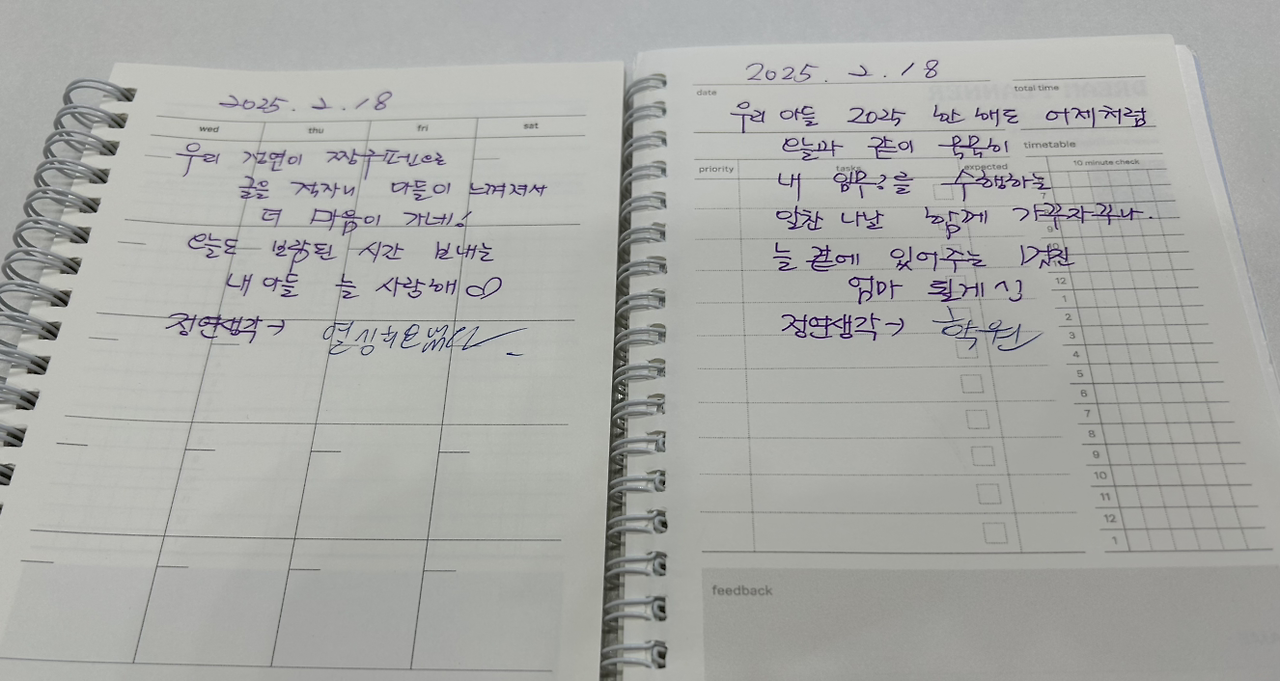 2025. 2. 18
wed thu fri sat
우리 정연이 짱구펜으로
글을 적자니 아들이 느껴져서
더 마음이 가네!
오늘도 보람된 시간 보내는
내 아들 늘 사랑해
정연생각→
2025. 2. 18
date total time
우리 아들 2025 한 해도 어제처럼
오늘과 같이 묵묵히
timetable
priority tasks expected 10 minute check
내 임무를 수행하는
알찬 나날 함께 가꾸자꾸나.
늘 곁에 있어주는
엄마 될게
정연생각→ 학원
12
1
2
3
4
5
6
7
8
9
10
11
12
1
feedback